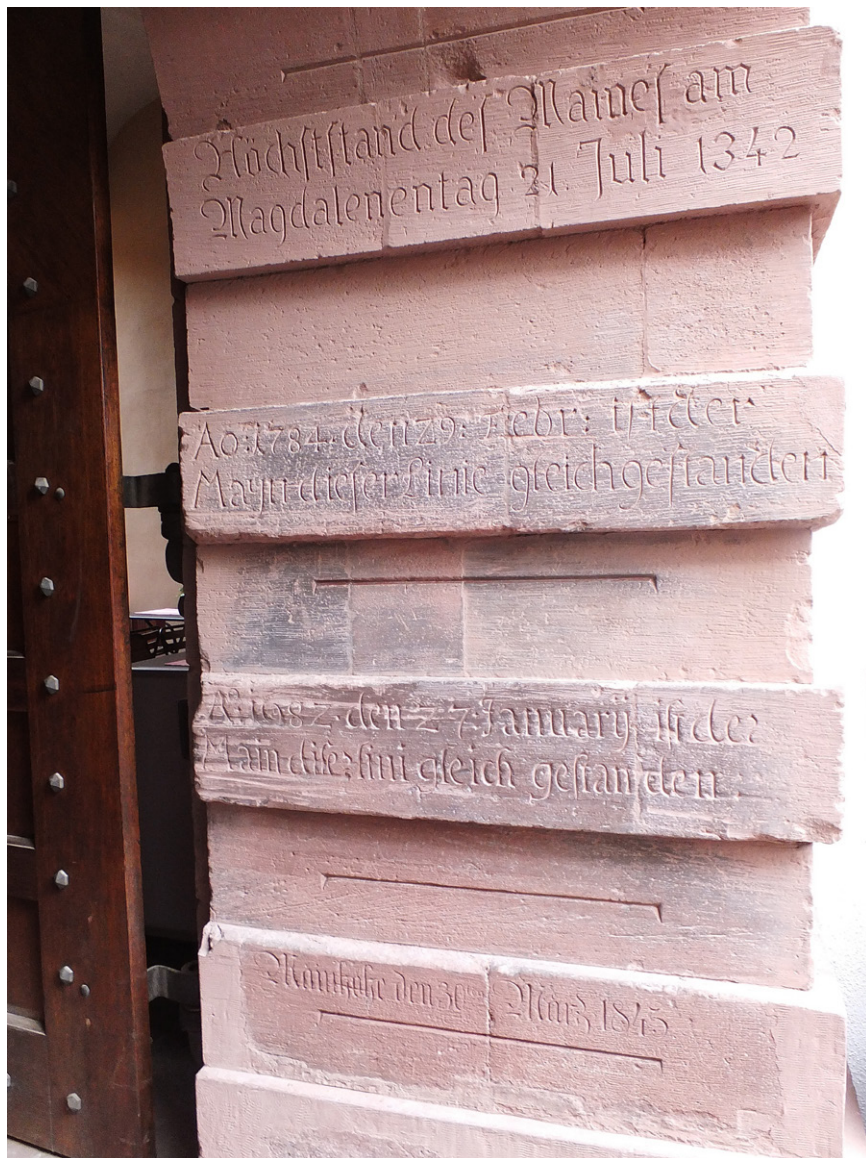 Höchſtſtand deſ Maineſ am
Magdalenentag 21. Juli 1342
Ao: 1784. den 29: Febr: iſt der
Mayn dieſer Linie gleich geſtanden
Ao 1682 den 27 Januarÿ iſt der
Main diſer lini gleich geſtanden
Mainhöhe den 30ten März 1845